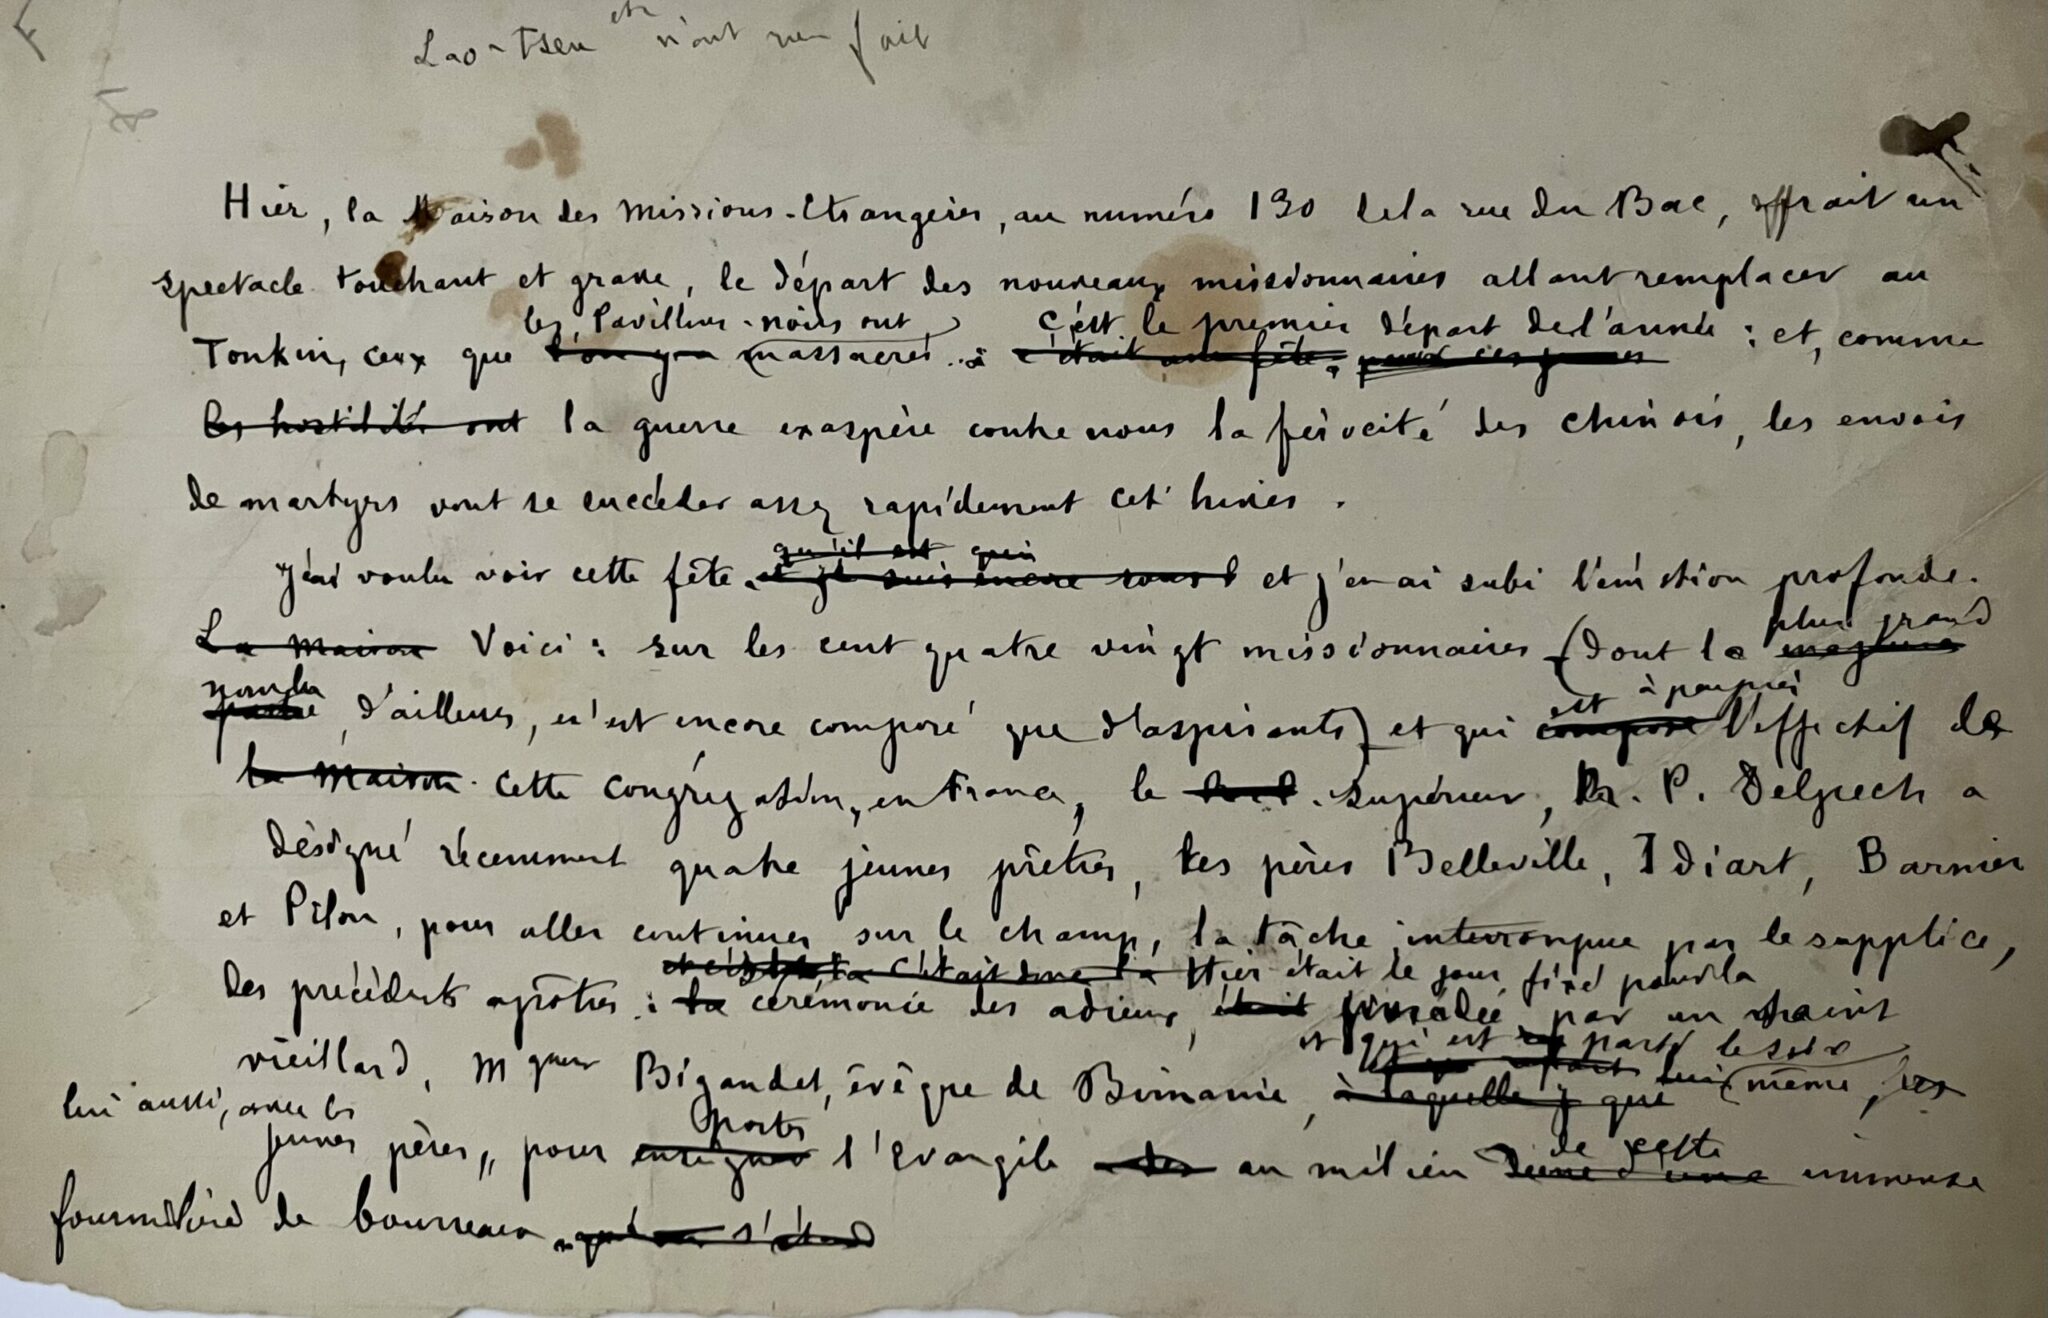 Lao-Tseu etc n'ont rien fait
Hier, la Maison des Missions-Etrangères, au numéro 130 de la rue du Bac, offrait un
spectacle touchant et grave, le départ des nouveaux missionnaires allant remplacer au
les Pavillons-noirs ont c'est le premier départ de l'année : et, comme
Tonkin, ceux que l'on y a massacrés. c'était une fête, pour ces jeunes
les hostilités ont la guerre exaspère contre nous la férocité des chinois, les envois
de martyrs vont se succéder assez rapidement cet hiver.
qu'il est
J'ai voulu voir cette fête et je suis encore sous l et j'en ai subi l'émotion profonde.
plus grand
La maison Voici : sur les cent quatre vingt missionnaires (dont la majeure
nombre est à peu près
partie, d'ailleurs, n'est encore composé que d'aspirants) et qui compose l'effectif de
la maison cette congrégation, en France, le supérieur, R. P. Delpech a
désigné récemment quatre jeunes prêtres, les pères Belleville, Idiart, Barnier
et Pilon, pour aller continuer sur le champ, la tâche interrompue par le supplice,
c'était une la Hier était le jour fixé pour la
des précédents apôtres : la cérémonie des adieux, était présidée par un saint
et qui est parti le soir
vieillard, Mgneur Bigandet, évêque de Birmanie, à laquelle que même, les
lui aussi, avec les
porter de cette
jeunes pères, pour enseigner l'Evangile au milieu d'une immense
fourmilière de bourreaux s'étend